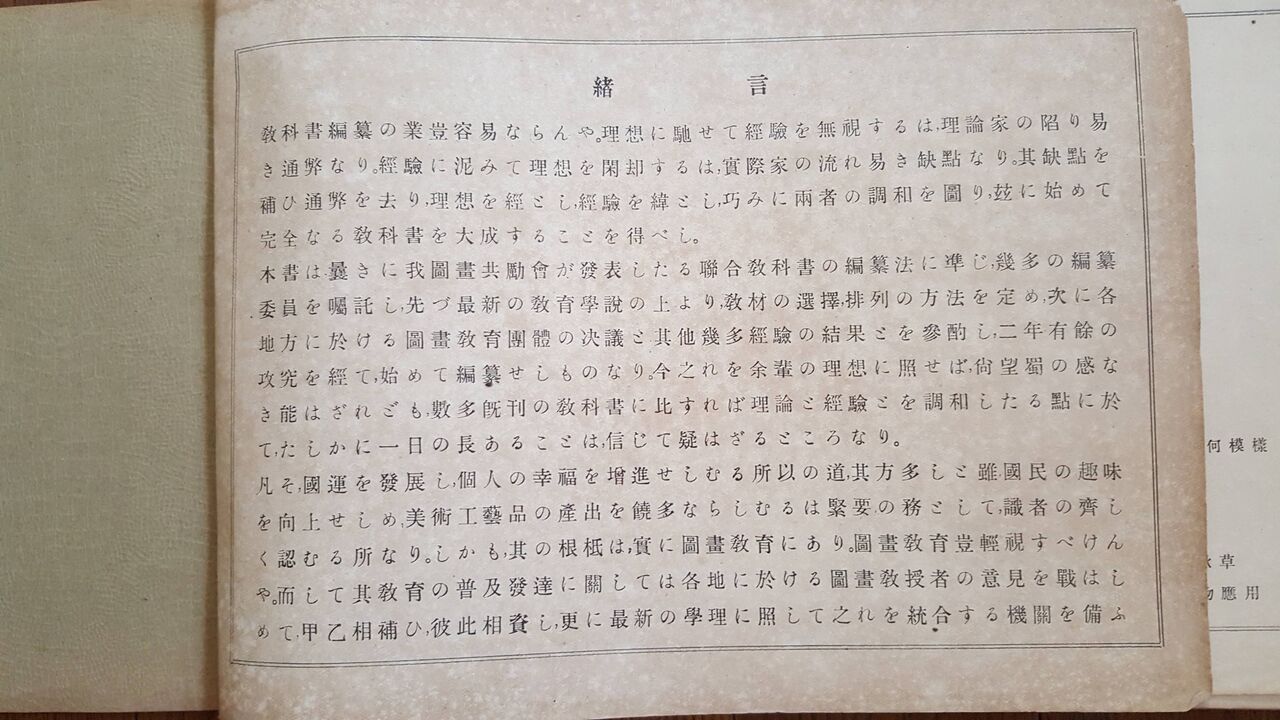 緒言
教科書編纂の業豈容易ならんや。理想に馳せて經驗を無視するは、理論家の陷り易
き通弊なり。經驗に泥みて理想を閑却するは、實際家の流れ易き缺點なり。其缺點を
補ひ通弊を去り、理想を經とし、經驗を緯とし、巧みに兩者の調和を圖り、玆に始めて
完全なる敎科書を大成することを得べし。
本書は、曩きに我圖畫共勵會が發表したる聯合敎科書の編纂法に準じ、幾多の編纂
委員を囑託し、先づ最新の敎育學說の上より、敎材の選擇、排列の方法を定め、次に各
地方に於ける圖畫敎育團體の决議と其他幾多經驗の結果とを參酌し、二年有餘の
攻究を經て、始めて編纂せしものなり。今之れを余輩の理想に照せば、尙望蜀の感な
き能はざれども、數多旣刊の敎科書に比すれば理論と經驗とを調和したる點に於
て、たしかに一日の長あることは、信じて疑はざるところなり。
凡そ、國運を發展し、個人の幸福を增進せしむる所以の道、其方多しと雖、國民の趣味
を向上せしめ、美術工藝品の產出を饒多ならしむるは緊要の務として、識者の齊し
く認むる所なり。しかも、其の根柢は、實に圖畫敎育にあり。圖畫敎育豈輕視すべけん
や。而して其敎育の普及發達に關しては各地に於ける圖畫敎授者の意見を戰はし
めて、甲乙相補ひ、彼此相資し、更に最新の學理に照して之れを統合する機關を備ふ
何模樣
草
應用